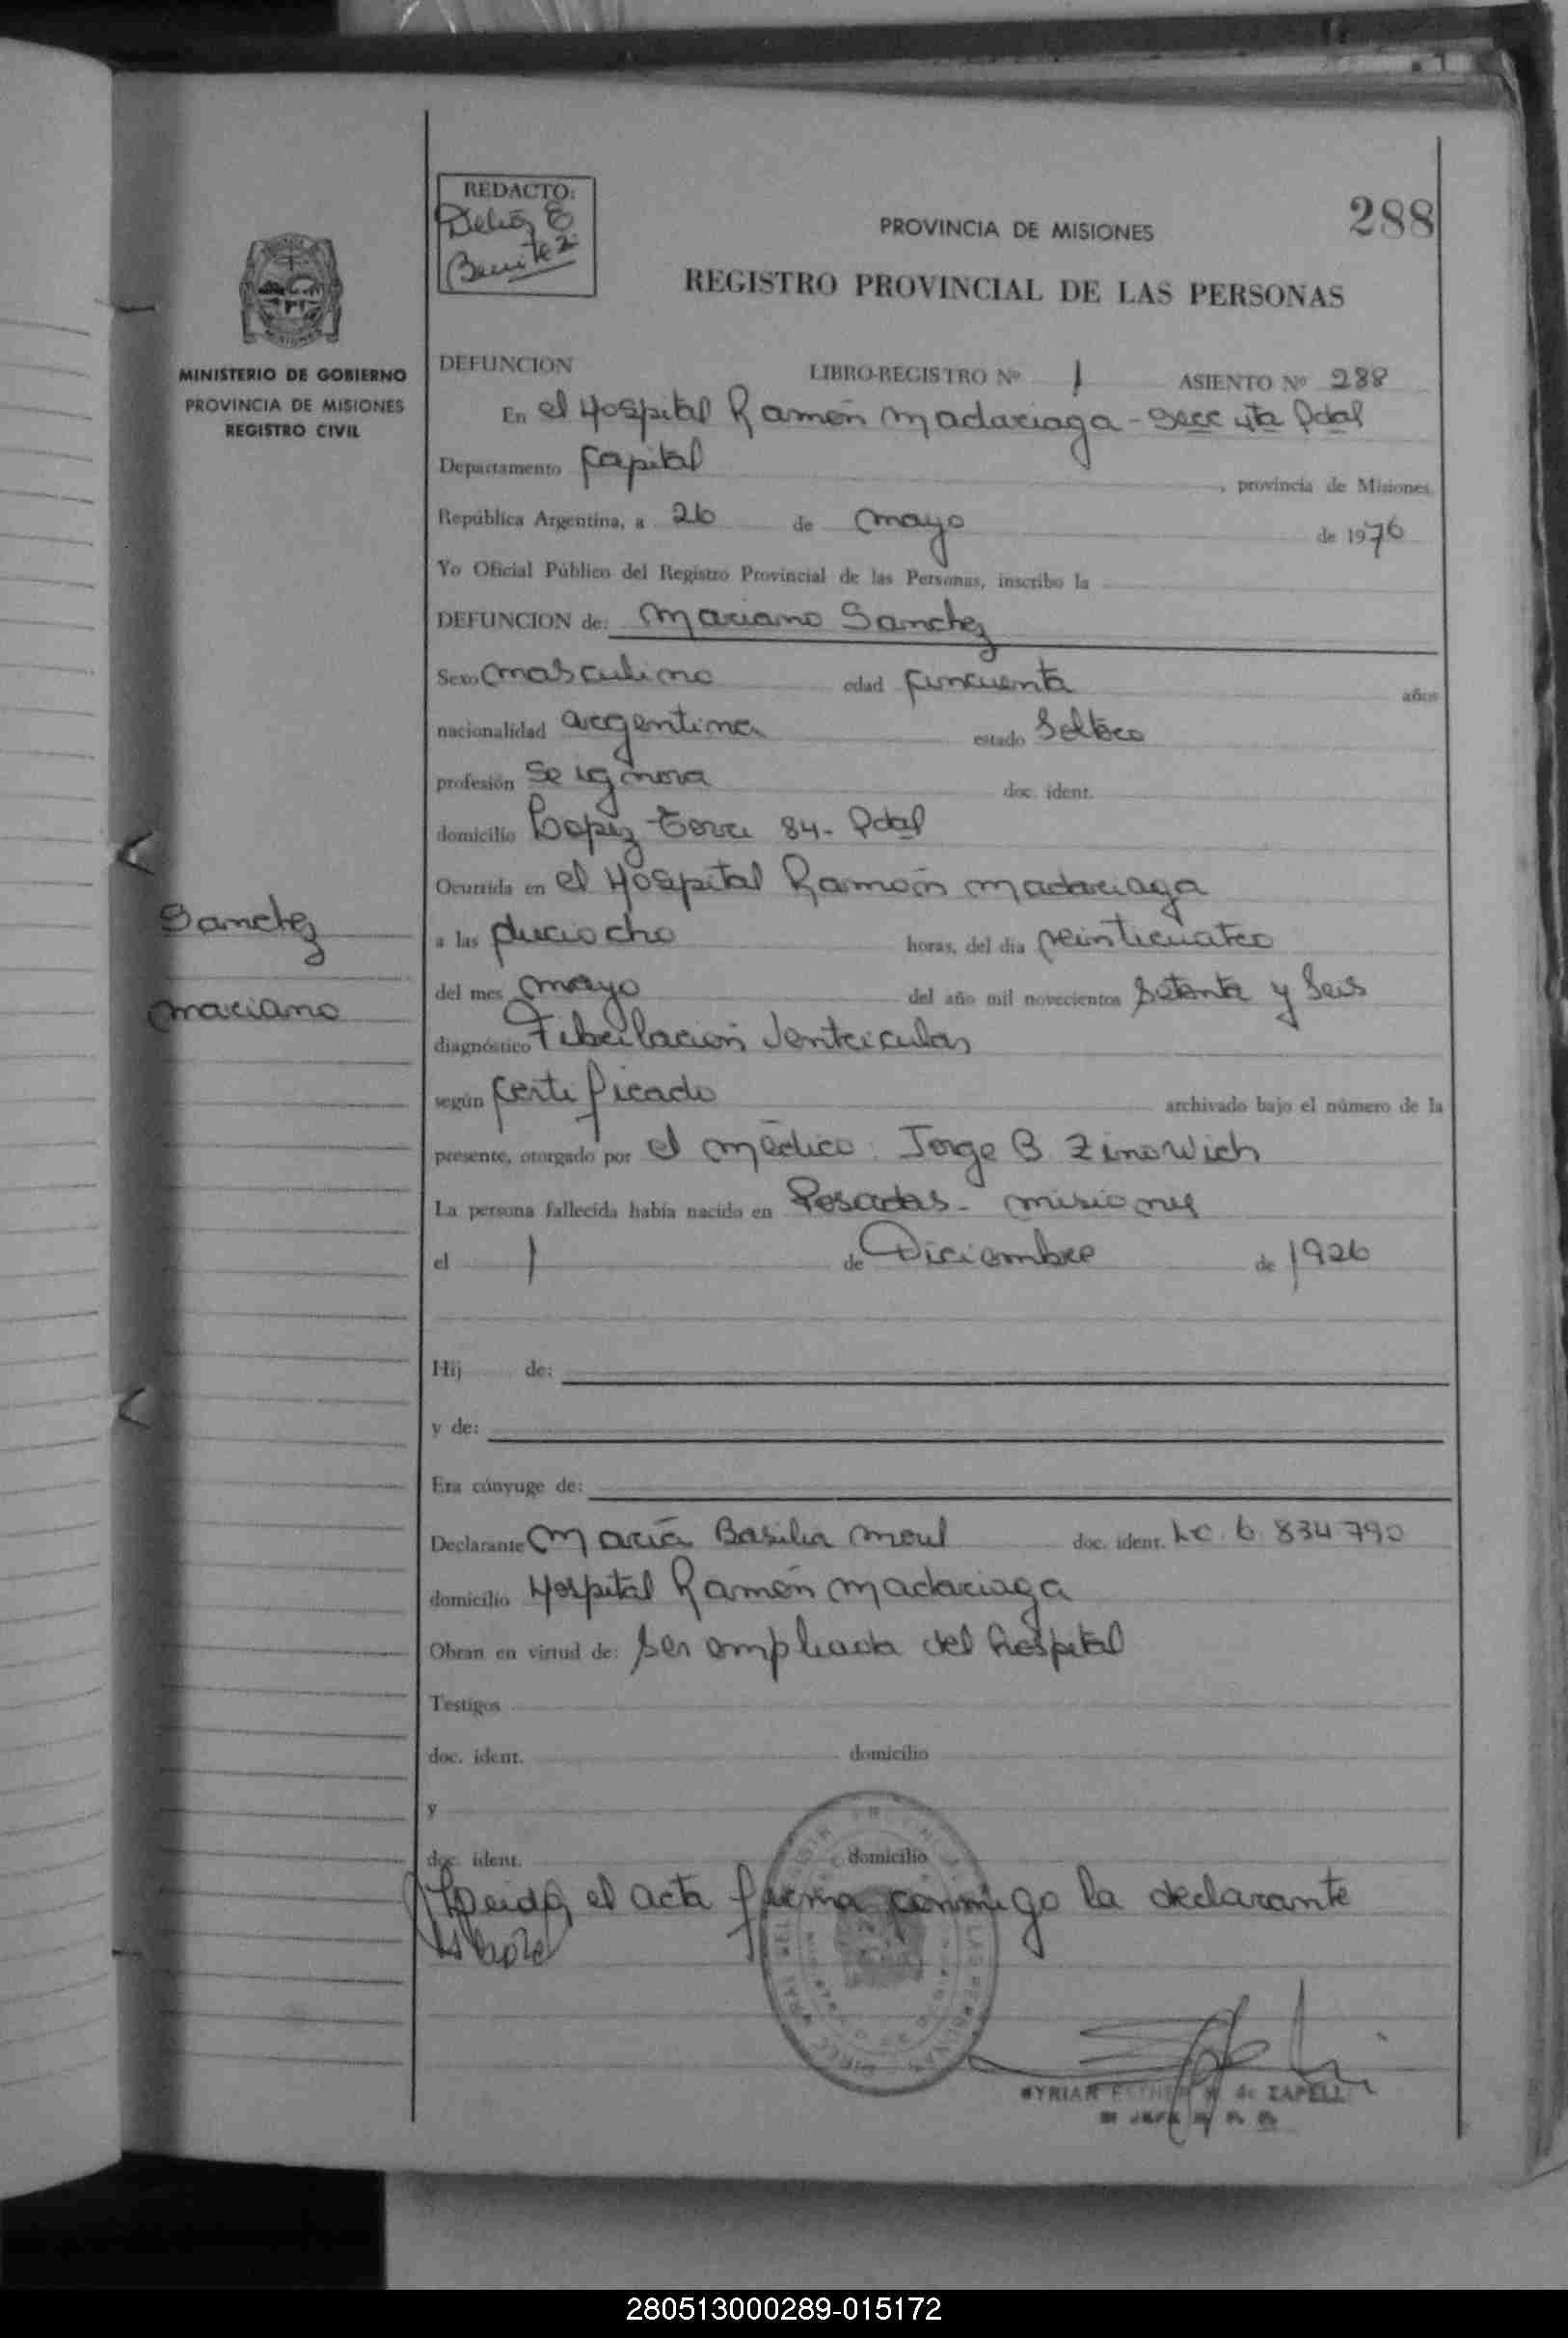 REDACTO:
Delia E
Benitez
288
PROVINCIA DE MISIONES
REGISTRO PROVINCIAL DE LAS PERSONAS
MINISTERIO DE GOBIERNO
PROVINCIA DE MISIONES
REGISTRO CIVIL
DEFUNCION LIBRO-REGISTRO Nº 1 ASIENTO Nº 288
En el Hospital Ramón Madariaga - Secc 4ta Pdas
Departamento Capital, provincia de Misiones,
República Argentina, a 26 de Mayo de 1976
Yo Oficial Público del Registro Provincial de las Personas, inscribo la
DEFUNCION de: Mariano Sanchez
Sexo Masculino edad Cincuenta años
nacionalidad argentina estado Soltero
profesión Se ignora doc. ident.
domicilio Lopez Torre 84 - Pdas
Ocurrida en el Hospital Ramón Madariaga
a las dieciocho horas, del día veinticuatro
del mes Mayo del año mil novecientos Setenta y Seis
diagnóstico Fibrilación Ventricular
según Certificado archivado bajo el número de la
presente, otorgado por el médico: Jorge B. Zinowich
La persona fallecida había nacido en Posadas - Misiones
el 1 de Diciembre de 1926
Hij de:
y de:
Era cónyuge de:
Declarante María Basilia doc. ident. L.C. 6.834790
domicilio Hospital Ramón Madariaga
Obran en virtud de: ser empleada del hospital
Testigos
doc. ident. domicilio
y
doc. ident. domicilio
Leida el acta firma conmigo la declarante
Sanchez
Mariano
MYRIAN ESTHER de ZAPELLI
280513000289-015172